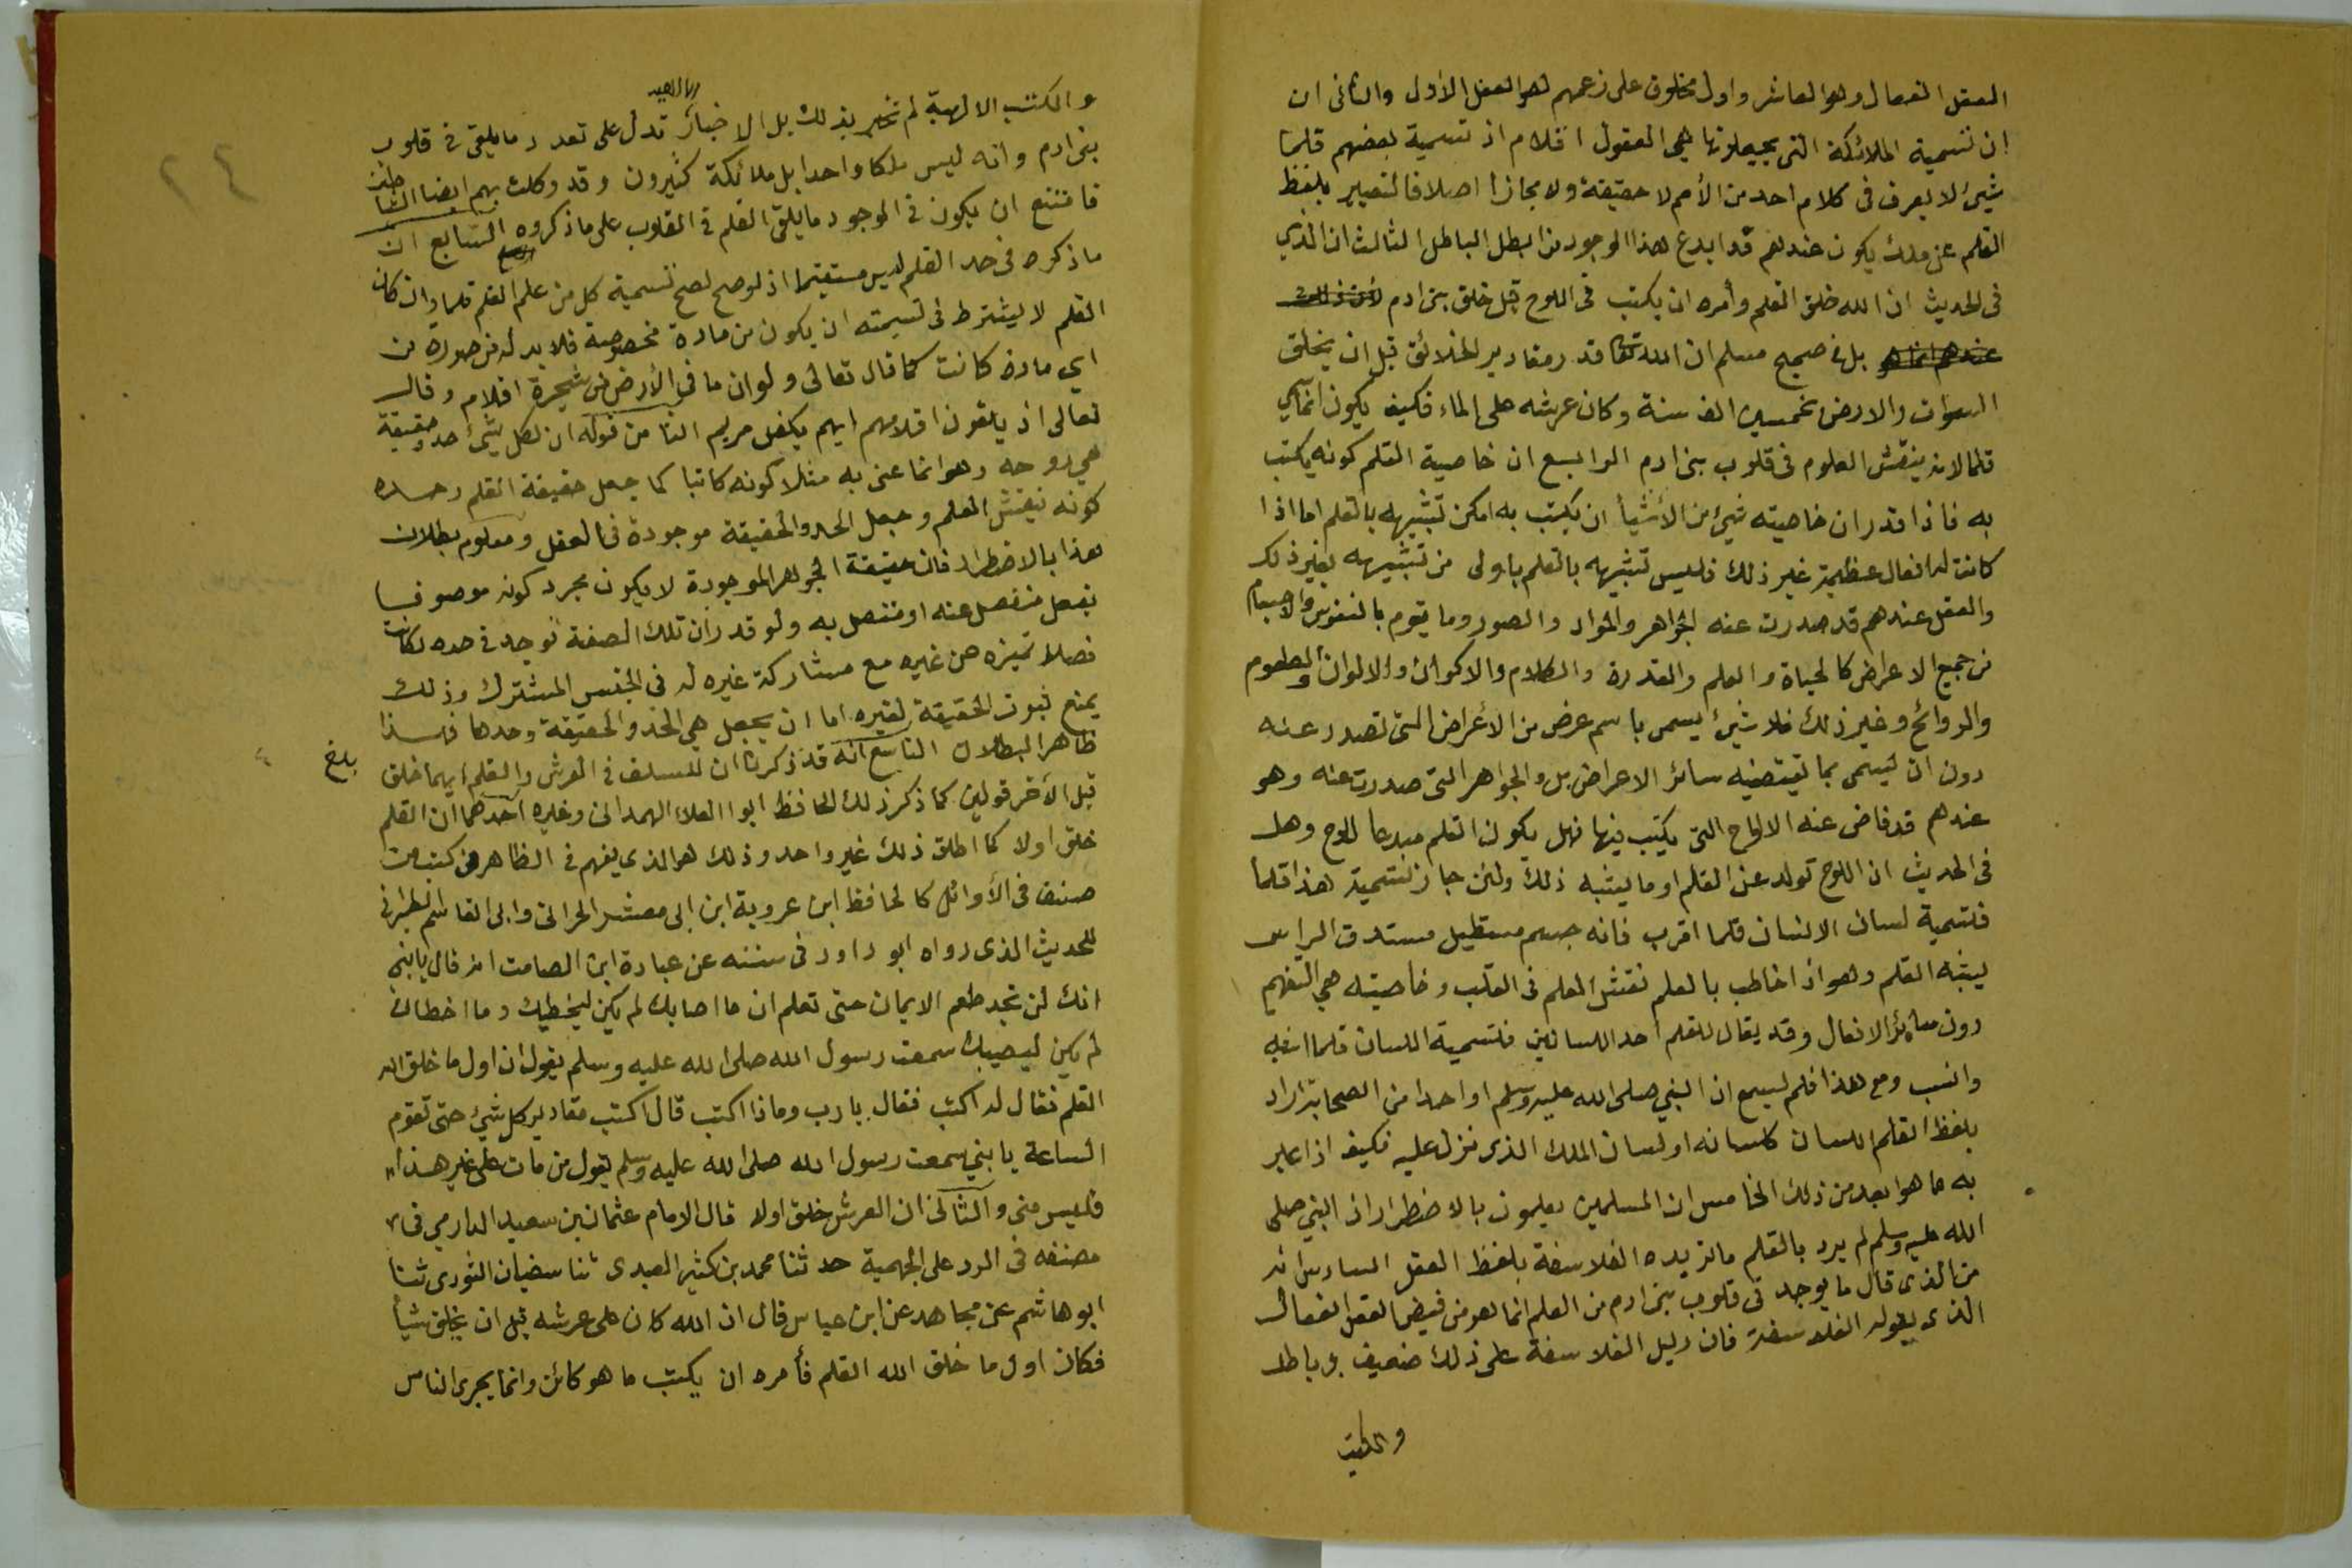 العقل الفعال وهو العاشر واول مخلوق على زعمهم هو العقل الاول والثانى ان
ان تسمية الملائكة التى يجعلونها هى العقول اقلام اذ تسمية بعضهم قلما
شيئ لا يعرف فى كلام احد من الأمم لا حقيقة ولا مجازا اصلا فالتعبير بلفظ
القلم عن ملك يكون عندهم قد ابدع هذا الوجود من ابطل الباطل الثالث ان الذي
فى الحديث ان الله خلق القلم وأمره ان يكتب فى اللوح قبل خلق بنى ادم
بل فى صحيح مسلم ان الله تعا قدر مقادير الخلائق قبل ان يخلق
السموات والارض بخمسين الف سنة وكان عرشه على الماء فكيف يكون انما سمي
قلما لانه ينقش العلوم فى قلوب بنى ادم الرابع ان خاصية القلم كونه يكتب
به فاذا قدر ان خاصيته شيئ من الأشيأ ان يكتب به امكن تشبيهه بالقلم اما اذا
كانت له افعال عظيمة غير ذلك فليس تشبيهه بالقلم باولى من تشبيهه بغير ذلك
والعقل عندهم قد صدرت عنه الجواهر والمواد والصور وما يقوم بالنفوس والاجسام
من جميع الاعراض كالحياة والعلم والقدرة والكلام والاكوان والالوان والطعوم
والروائح وغير ذلك فلا شيئ يسمى باسم عرض من الأعراض التى تصدر عنه
دون ان يسمى بما تقتضيه سائر الاعراض بل والجواهر التى صدرت عنه وهو
عندهم قد فاض عنه الالواح التى يكتب فيها فهل يكون القلم مبدعا للوح وهل
فى الحديث ان اللوح تولد عن القلم او ما يشبه ذلك ولئن جاز تسمية هذا قلما
فتسمية لسان الانسان قلما اقرب فانه جسم مستطيل مستدق الراس
يشبه القلم وهو اذا خاطب بالعلم نقش العلم فى القلب وخاصيته هي التفهيم
دون سائر الافعال وقد يقال للقلم احد اللسانين فتسمية اللسان قلما اشبه
وانسب ومع هذا فلم يسمع ان النبي صلى الله عليه وسلم او احدا من الصحابة اراد
بلفظ القلم اللسان كلسانه او لسان الملك الذى نزل عليه فكيف اذا عبر
به ما هو ابعد من ذلك الخامس ان المسلمين يعلمون بالاضطرار ان النبي صلى
الله عليه وسلم لم يرد بالقلم ما تريده الفلاسفة بلفظ العقل السادس انه
من الذى قال ما يوجد فى قلوب بنى ادم من العلم انما هو من فيض العقل الفعال
الذى يقوله الفلاسفة فان دليل الفلاسفة على ذلك ضعيف بل باطل
والكتب
٢٤
والكتب الالهية لم تخبر بذلك بل الاخبار الالهيه تدل على تعدد ما يلقى فى قلوب
بنى ادم وانه ليس ملكا واحدا بل ملائكة كثيرون وقد وكلت بهم ايضا الشياطين
فامتنع ان يكون فى الوجود ما يلقى القلم فى القلوب على ما ذكروه السابع ان
ما ذكره فى حد القلم ليس مستقيما اذ لو صح لصح تسمية كل من علم القلم قلما وان كان
القلم لا يشترط فى تسيمته ان يكون من مادة مخصوصة فلا بد له من صورة من
اي مادة كانت كما قال تعالى ولو ان ما فى الأرض من شجرة اقلام وقال
تعالى اذ يلقون اقلامهم ايهم يكفل مريم الثامن قوله ان لكل شئ حد وحقيقة
هى روحه وهو انما عنى به مثلا كونه كاتبا كما جعل حقيقة القلم وحده
كونه ينقش العلم وجعل الحد والحقيقة موجودة فى العقل ومعلوم بطلان
هذا بالاضطرار فان حقيقة الجواهر الموجودة لا يكون مجرد كونه موصوفا
بفعل منفصل عنه او متصل به ولو قدر ان تلك الصفة توجد فى حده لكانت
فصلا تميزه عن غيره مع مشاركة غيره له فى الجنس المشترك وذلك
يمنع ثبوت الحقيقة لغيره اما ان يجعل هي الحد والحقيقة وحدها فهذا
ظاهر البطلان التاسع انه قد ذكرنا ان للسلف فى العرش والقلم ايهما خلق
بلغ
قبل الأخر قولين كما ذكر ذلك الحافظ ابو العلا الهمدانى وغيره احدهما ان القلم
خلق اولا كما اطلق ذلك غير واحد وذلك هو الذى يفهم فى الظاهر من كتب من
صنف فى الأوائل كالحافظ ابن عروبة ابن ابى معشر الحرانى وابى القاسم الطبرانى
للحديث الذى رواه ابو داود فى سننه عن عبادة ابن الصامت انه قال يا بني
انك لن تجد طعم الايمان حتى تعلم ان ما اصابك لم يكن ليخطيك وما اخطاك
لم يكن ليصيبك سمعت رسول الله صلى الله عليه وسلم يقول ان اول ما خلق الله
القلم فقال له اكتب فقال يا رب وماذا اكتب قال اكتب مقادير كل شيئ حتى تقوم
الساعة يا بني سمعت رسول الله صلى الله عليه وسلم يقول من مات على غير هذا
فليس منى والثانى ان العرش خلق اولا قال الامام عثمان بن سعيد الدارمي فى
مصنفه فى الرد على الجهمية حدثنا محمد بن كثير العبدى ثنا سفيان الثورى ثنا
ابو هاشم عن مجاهد عن ابن عباس قال ان الله كان على عرشه قبل ان يخلق شيأ
فكان اول ما خلق الله القلم فأمره ان يكتب ما هو كائن وانما يجرى الناس